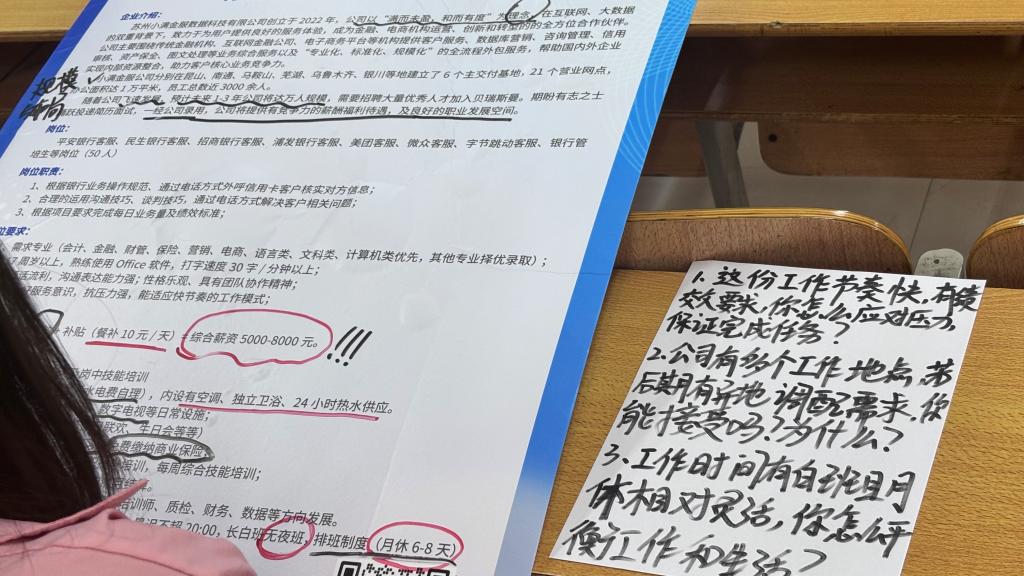 企业介绍：
苏州小满金服数据科技有限公司创立于 2022 年，公司以“满而未盈，和而有度”为理念，在互联网、大数据
的双重背景下，致力于为用户提供良好的服务体验，成为金融、电商机构运营、创新和转型的的全方位合作伙伴。
公司主要围绕传统金融机构、互联网金融公司、电子商务平台等机构提供客户服务、数据库营销、咨询管理、信用
审核、资产保全、图文处理等业务综合服务以及“专业化、标准化、规模化”的全流程外包服务，帮助国内外企业
实现内部资源整合，助力客户核心业务竞争力。
小满金服公司分别在昆山、南通、马鞍山、芜湖、乌鲁木齐、银川等地建立了 6 个主交付基地，21 个营业网点，
办公面积达 1 万平米，员工总数近 3000 余人。
随着公司飞速发展，预计未来 1-3 年公司将达万人规模，需要招聘大量优秀人才加入贝瑞斯曼。期盼有志之士
踊跃投递简历面试，一经公司录用，公司将提供有竞争力的薪酬福利待遇，及良好的职业发展空间。
规模
岗位：
平安银行客服、民生银行客服、招商银行客服、浦发银行客服、美团客服、微众客服、字节跳动客服、银行管
培生等岗位（50 人）
岗位职责：
1、根据银行业务操作规范、通过电话方式外呼信用卡客户核实对方信息；
2、合理的运用沟通技巧、谈判技巧，通过电话方式解决客户相关问题；
3、根据项目要求完成每日业务量及绩效标准；
位要求：
需求专业（会计、金融、财管、保险、营销、电商、语言类、文科类、计算机类优先，其他专业择优录取）；
周岁以上，熟练使用 Office 软件，打字速度 30 字 / 分钟以上；
话流利，沟通表达能力强；性格乐观、具有团队协作精神；
服务意识，抗压力强，能适应快节奏的工作模式；
补贴（餐补 10 元 / 天）= 综合薪资 5000-8000 元。
!!!
岗中技能培训
水电费自理），内设有空调、独立卫浴、24 小时热水供应。
数字电视等日常设施；
联欢、生日会等等）
费缴纳商业保险
培训，每周综合技能培训；
培训师、质检、财务、数据等方向发展。
不超 20:00，长白班无夜班，排班制度（月休 6-8 天）
1. 这份工作节奏快，有绩
效要求，你怎么应对压力，
保证完成任务？
2. 公司有多个工作地点，若
后期有异地调配需求，你
能接受吗？为什么？
3. 工作时间有白班且月
休相对灵活，你怎么平
衡工作和生活？